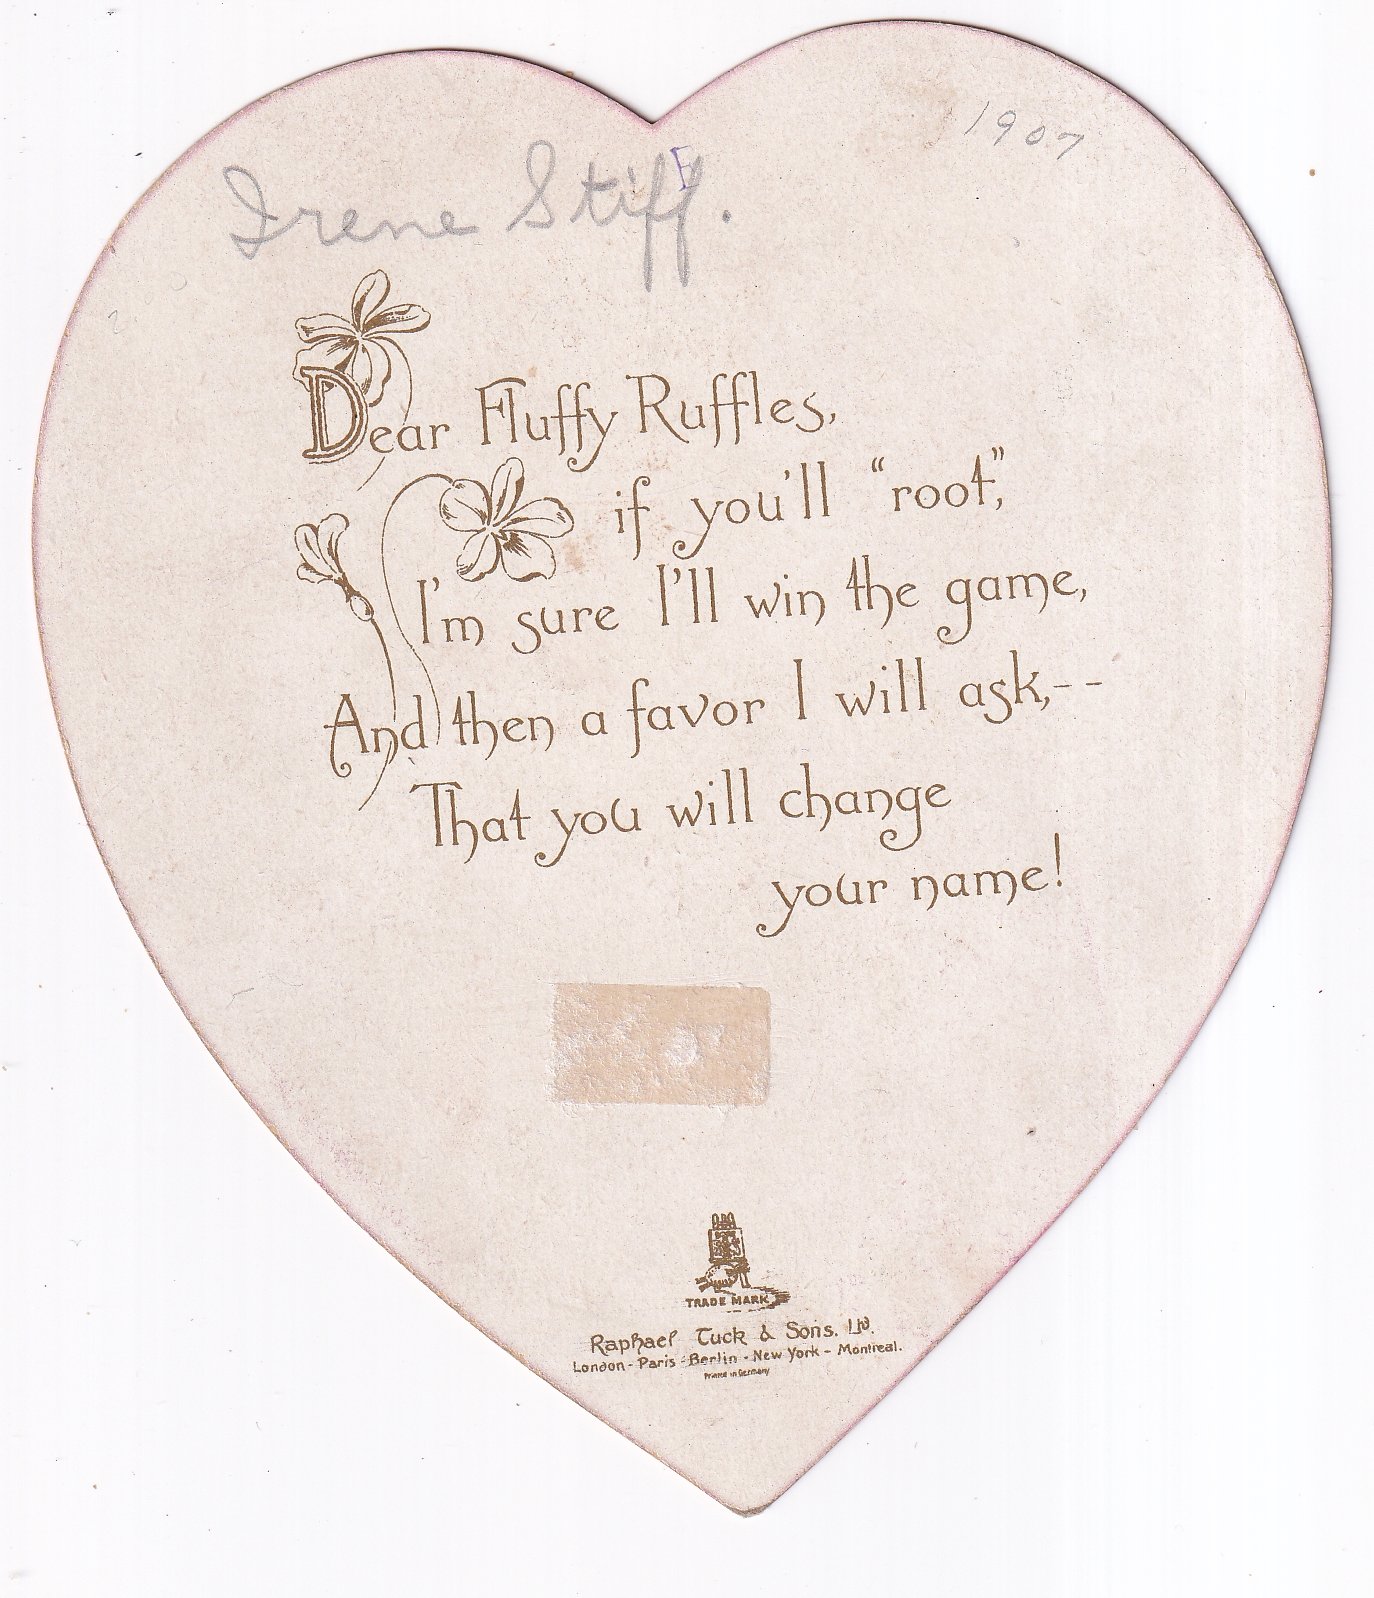 1907
Irene Stiff.
Dear Fluffy Ruffles,
if you'll "root",
I'm sure I'll win the game,
And then a favor I will ask,--
That you will change
your name!
TRADE MARK
Raphael Tuck & Sons. Ltd.
London - Paris - Berlin - New York - Montreal.
Printed in Germany